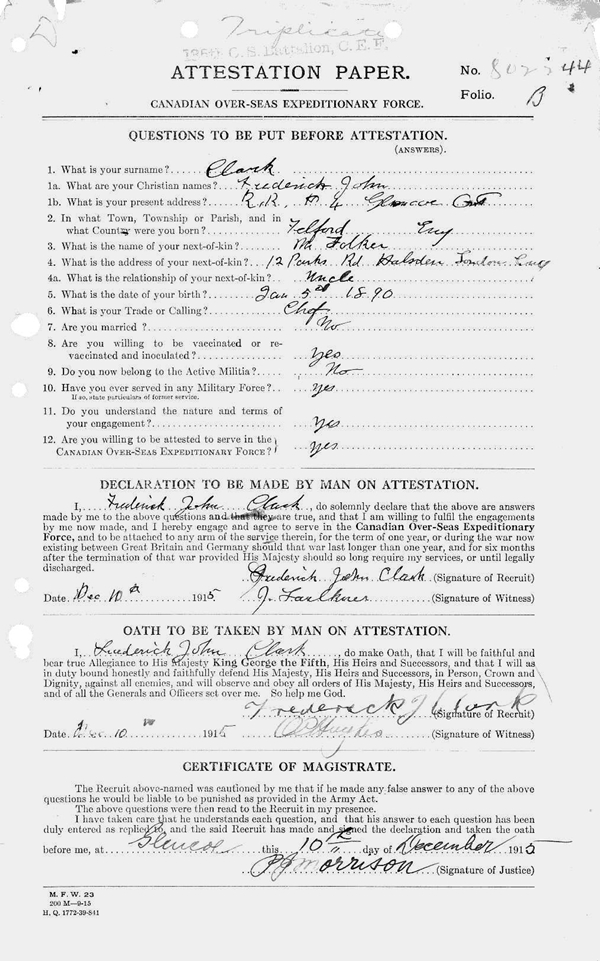 Triplicate
135th C. S. Battalion, C. E. F.
ATTESTATION PAPER. No. 802544
Folio. B
CANADIAN OVER-SEAS EXPEDITIONARY FORCE.
QUESTIONS TO BE PUT BEFORE ATTESTATION.
(ANSWERS).
1. What is your surname? Clark
1a. What are your Christian names? Frederick John
1b. What is your present address? R.R. No 4 Glencoe Ont
2. In what Town, Township or Parish, and in
what Country were you born? Telford Eng
3. What is the name of your next-of-kin? Mr Folker
4. What is the address of your next-of-kin? 12 Parks Rd Halsden London Eng
4a. What is the relationship of your next-of-kin? Uncle
5. What is the date of your birth? Jan 5th 1890
6. What is your Trade or Calling? Chef
7. Are you married ? No
8. Are you willing to be vaccinated or re-
vaccinated and inoculated? Yes
9. Do you now belong to the Active Militia? No
10. Have you ever served in any Military Force? Yes
If so, state particulars of former service.
11. Do you understand the nature and terms of
your engagement? Yes
12. Are you willing to be attested to serve in the
CANADIAN OVER-SEAS EXPEDITIONARY FORCE? Yes
DECLARATION TO BE MADE BY MAN ON ATTESTATION.
I, Frederick John Clark, do solemnly declare that the above are answers
made by me to the above questions and that they are true, and that I am willing to fulfil the engagements
by me now made, and I hereby engage and agree to serve in the Canadian Over-Seas Expeditionary
Force, and to be attached to any arm of the service therein, for the term of one year, or during the war now
existing between Great Britain and Germany should that war last longer than one year, and for six months
after the termination of that war provided His Majesty should so long require my services, or until legally
discharged.
Frederick John Clark (Signature of Recruit)
Date Dec 10th 1915 J. Faulkner (Signature of Witness)
OATH TO BE TAKEN BY MAN ON ATTESTATION.
I, Frederick John Clark, do make Oath, that I will be faithful and
bear true Allegiance to His Majesty King George the Fifth, His Heirs and Successors, and that I will as
in duty bound honestly and faithfully defend His Majesty, His Heirs and Successors, in Person, Crown and
Dignity, against all enemies, and will observe and obey all orders of His Majesty, His Heirs and Successors,
and of all the Generals and Officers set over me. So help me God.
Frederick J Clark (Signature of Recruit)
Date Dec 10th 1915 (Signature of Witness)
CERTIFICATE OF MAGISTRATE.
The Recruit above-named was cautioned by me that if he made any false answer to any of the above
questions he would be liable to be punished as provided in the Army Act.
The above questions were then read to the Recruit in my presence.
I have taken care that he understands each question, and that his answer to each question has been
duly entered as replied to, and the said Recruit has made and signed the declaration and taken the oath
before me, at Glencoe this 10th day of December 1915
Morrison (Signature of Justice)
M. F. W. 23
200 M—9-15
H. Q. 1772-39-841